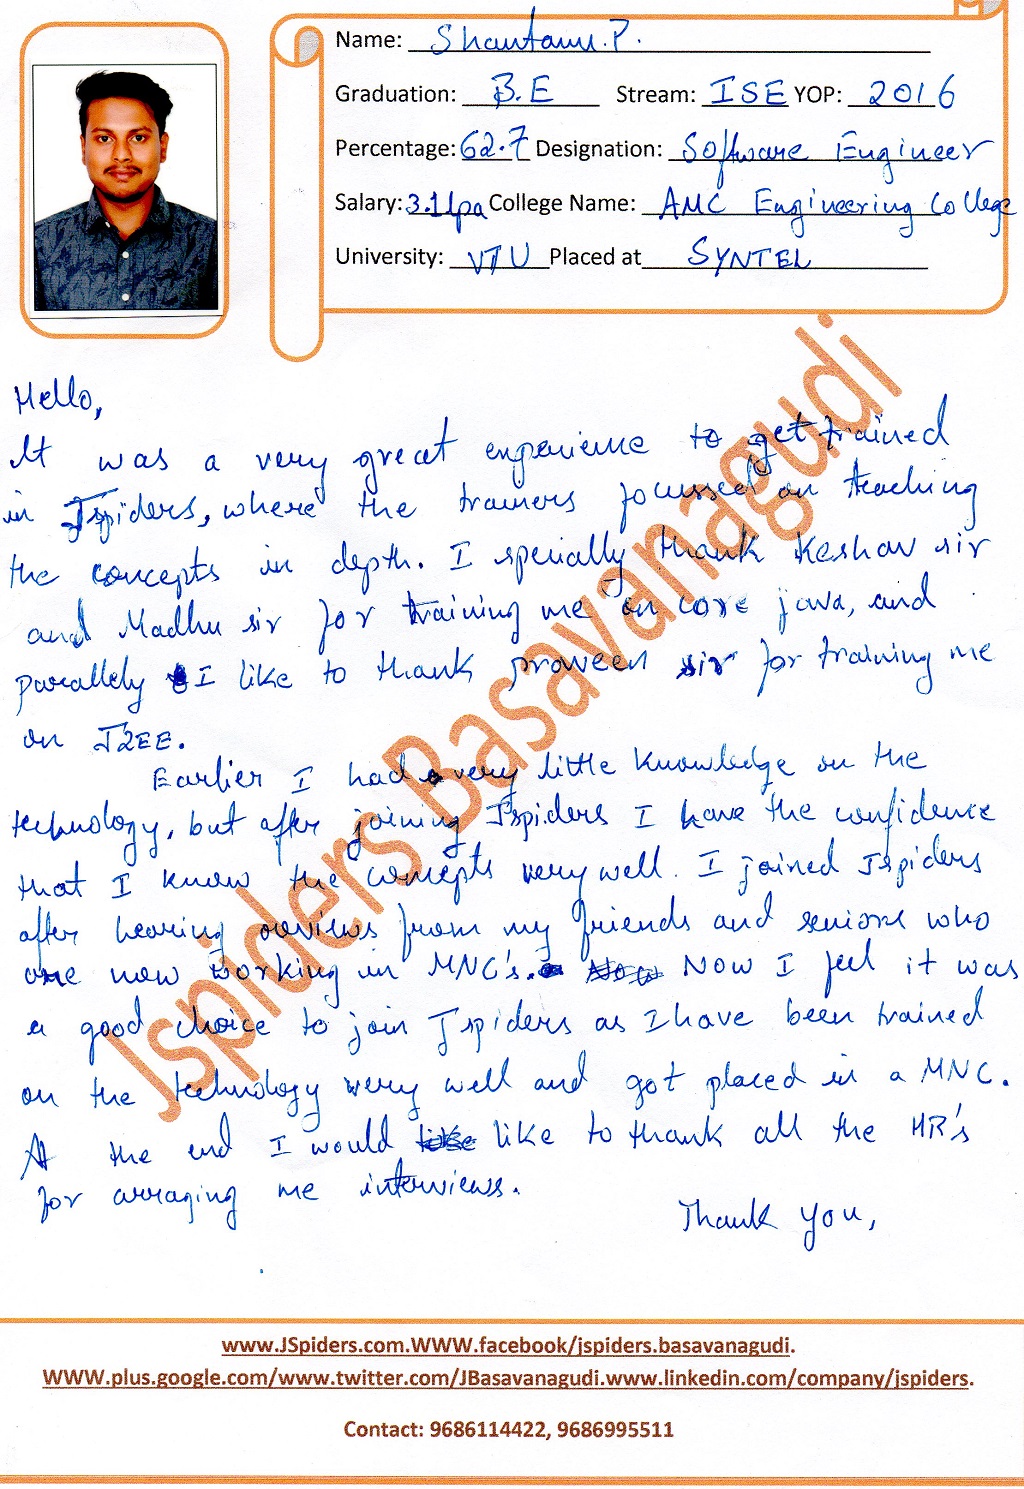 Name: Shantanu.P.
Graduation: B.E Stream: ISE YOP: 2016
Percentage: 62.7 Designation: Software Engineer
Salary: 3.1lpa College Name: AMC Engineering College
University: VTU Placed at SYNTEL
Hello,
It was a very great experience to get trained
in Jspiders, where the trainers focussed on teaching
the concepts in depth. I specially thank Keshav sir
and Madhu sir for training me on core java, and
parallely I like to thank praveen sir for training me
on J2EE.
Earlier I had very little knowledge on the
technology, but after joining Jspiders I have the confidence
that I know the concepts very well. I joined Jspiders
after hearing reviews from my friends and seniors who
are now working in MNC's. Now I feel it was
a good choice to join Jspiders as I have been trained
on the technology very well and got placed in a MNC.
At the end I would like to thank all the HR's
for arraging me interviews.
Thank you,
Jspiders Basavanagudi
www.JSpiders.com.WWW.facebook/jspiders.basavanagudi.
WWW.plus.google.com/www.twitter.com/JBasavanagudi.www.linkedin.com/company/jspiders.
Contact: 9686114422, 9686995511